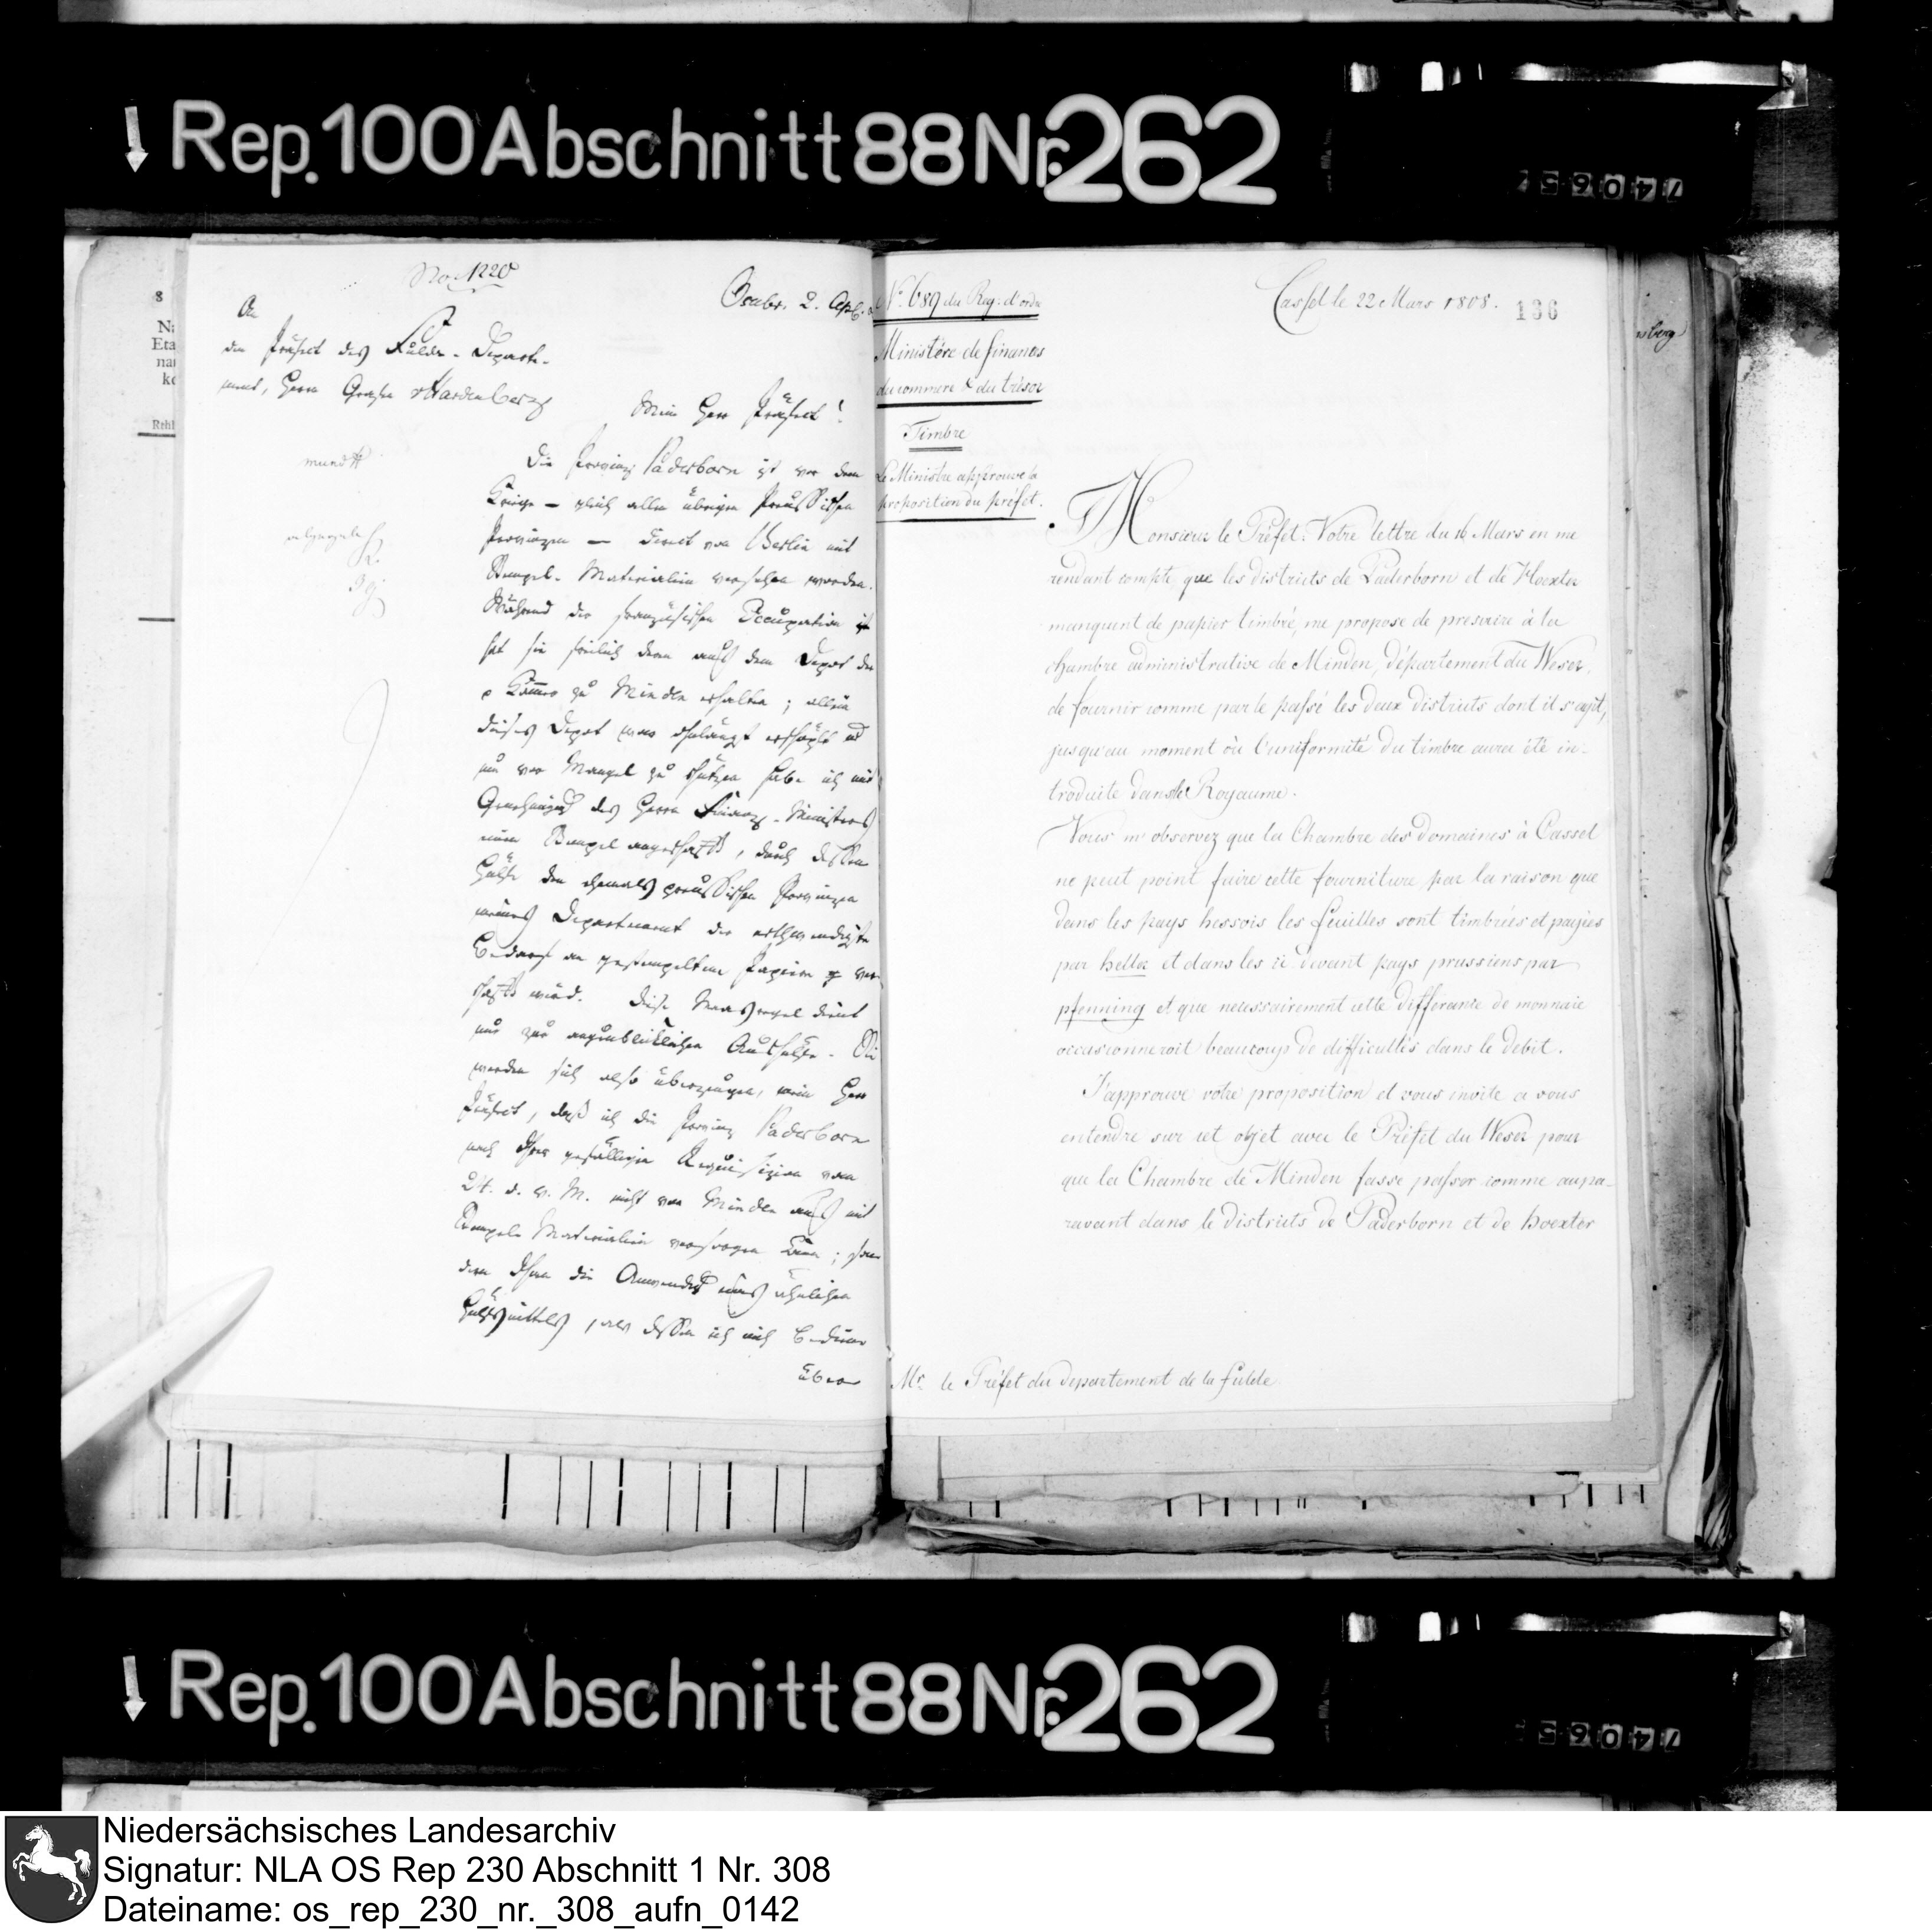 Rep. 100 Abschnitt 88 Nr. 262
74065
No. 1220
Osnabr. 2. Apr.
An
den Präfect des Fulda-Departe-
ments, Herrn Grafen v Hardenberg
Mein Herr Präfect!
mundt
Die Provinz Paderborn ist vor dem
Kriege — gleich allen übrigen Preußischen
Provinzen — direct von Berlin mit
Stempel-Materialien versehen worden.
Während der französischen Occupation
hat sie freilich denn aus dem Depot der
Kammer zu Minden erhalten; allein
dieses Depot war erschöpft und
um vor Mangel zu schützen habe ich mit
Genehmigung des Herrn Finanz-Ministers
einen Stempel angeschafft, durch dessen
Hülfe den ehemals preußischen Provinzen
meines Departement der nothwendigste
Bedarf an gestempeltem Papier ver-
schafft wird. Diese Maasregel dient
nur zur augenblicklichen Aushülfe. Sie
werden sich also überzeugen, mein Herr
Präfect, daß ich die Provinz Paderborn
nach Ihrer gefälligen Requisizion vom
24. d. v. M. nicht von Minden aus mit
Stempel Materialien versorgen kann; son-
dern Ihnen die Anwendung eines ähnlichen
Hülfsmittels, als dessen ich mich bediene
über
No. 689 du Reg: d'ordre
Cassel le 22 Mars 1808.
136
Ministère de finances
du commerce & du trésor
Timbre
Le Ministre approuve la
proposition du préfet.
Monsieur le Préfet. Votre lettre du 16 Mars en me
rendant compte que les districts de Paderborn et de Hoexter
manquent de papier timbré, me propose de prescrire à la
chambre administrative de Minden, département du Weser,
de fournir comme par le passé les deux districts dont il s'agit,
jusqu'au moment où l'uniformité du timbre aura été in-
troduite dans le Royaume.
Vous m'observez que la Chambre des Domaines à Cassel
ne peut point faire cette fourniture par la raison que
dans les pays hessois les feuilles sont timbrées et payées
par heller et dans les ci devant pays prussiens par
pfenning et que necessairement cette différence de monnaie
occasionneroit beaucoup de difficultés dans le debit.
J'approuve votre proposition et vous invite a vous
entendre sur cet objet avec le Préfet du Weser pour
que la Chambre de Minden fasse passer comme aupa-
ravant dans le districts de Paderborn et de hoexter
Mr. le Préfet du departement de la fulde
Rep. 100 Abschnitt 88 Nr. 262
74065
Niedersächsisches Landesarchiv
Signatur: NLA OS Rep 230 Abschnitt 1 Nr. 308
Dateiname: os_rep_230_nr._308_aufn_0142